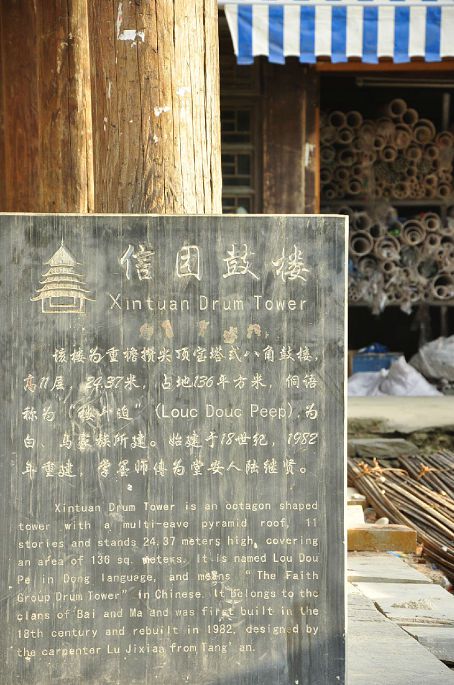 信团鼓楼
Xintuan Drum Tower
该楼为重檐攒尖顶宫塔式八角鼓楼,
高11层, 24.37米, 占地136平方米, 侗语
称为 (Louc Douc Peep), 为
白、马家族所建。始建于18世纪, 1982
年重建, 掌墨师傅为堂安人陆继贤。
Xintuan Drum Tower is an octagon shaped
tower with a multi-eave pyramid roof, 11
stories and stands 24.37 meters high, covering
an area of 136 sq. meters. It is named Lou Dou
Pe in Dong language, and means "The Faith
Group Drum Tower" in Chinese. It belongs to the
clans of Bai and Ma and was first built in the
18th century and rebuilt in 1982, designed by
the carpenter Lu Jixian from Tang' an.